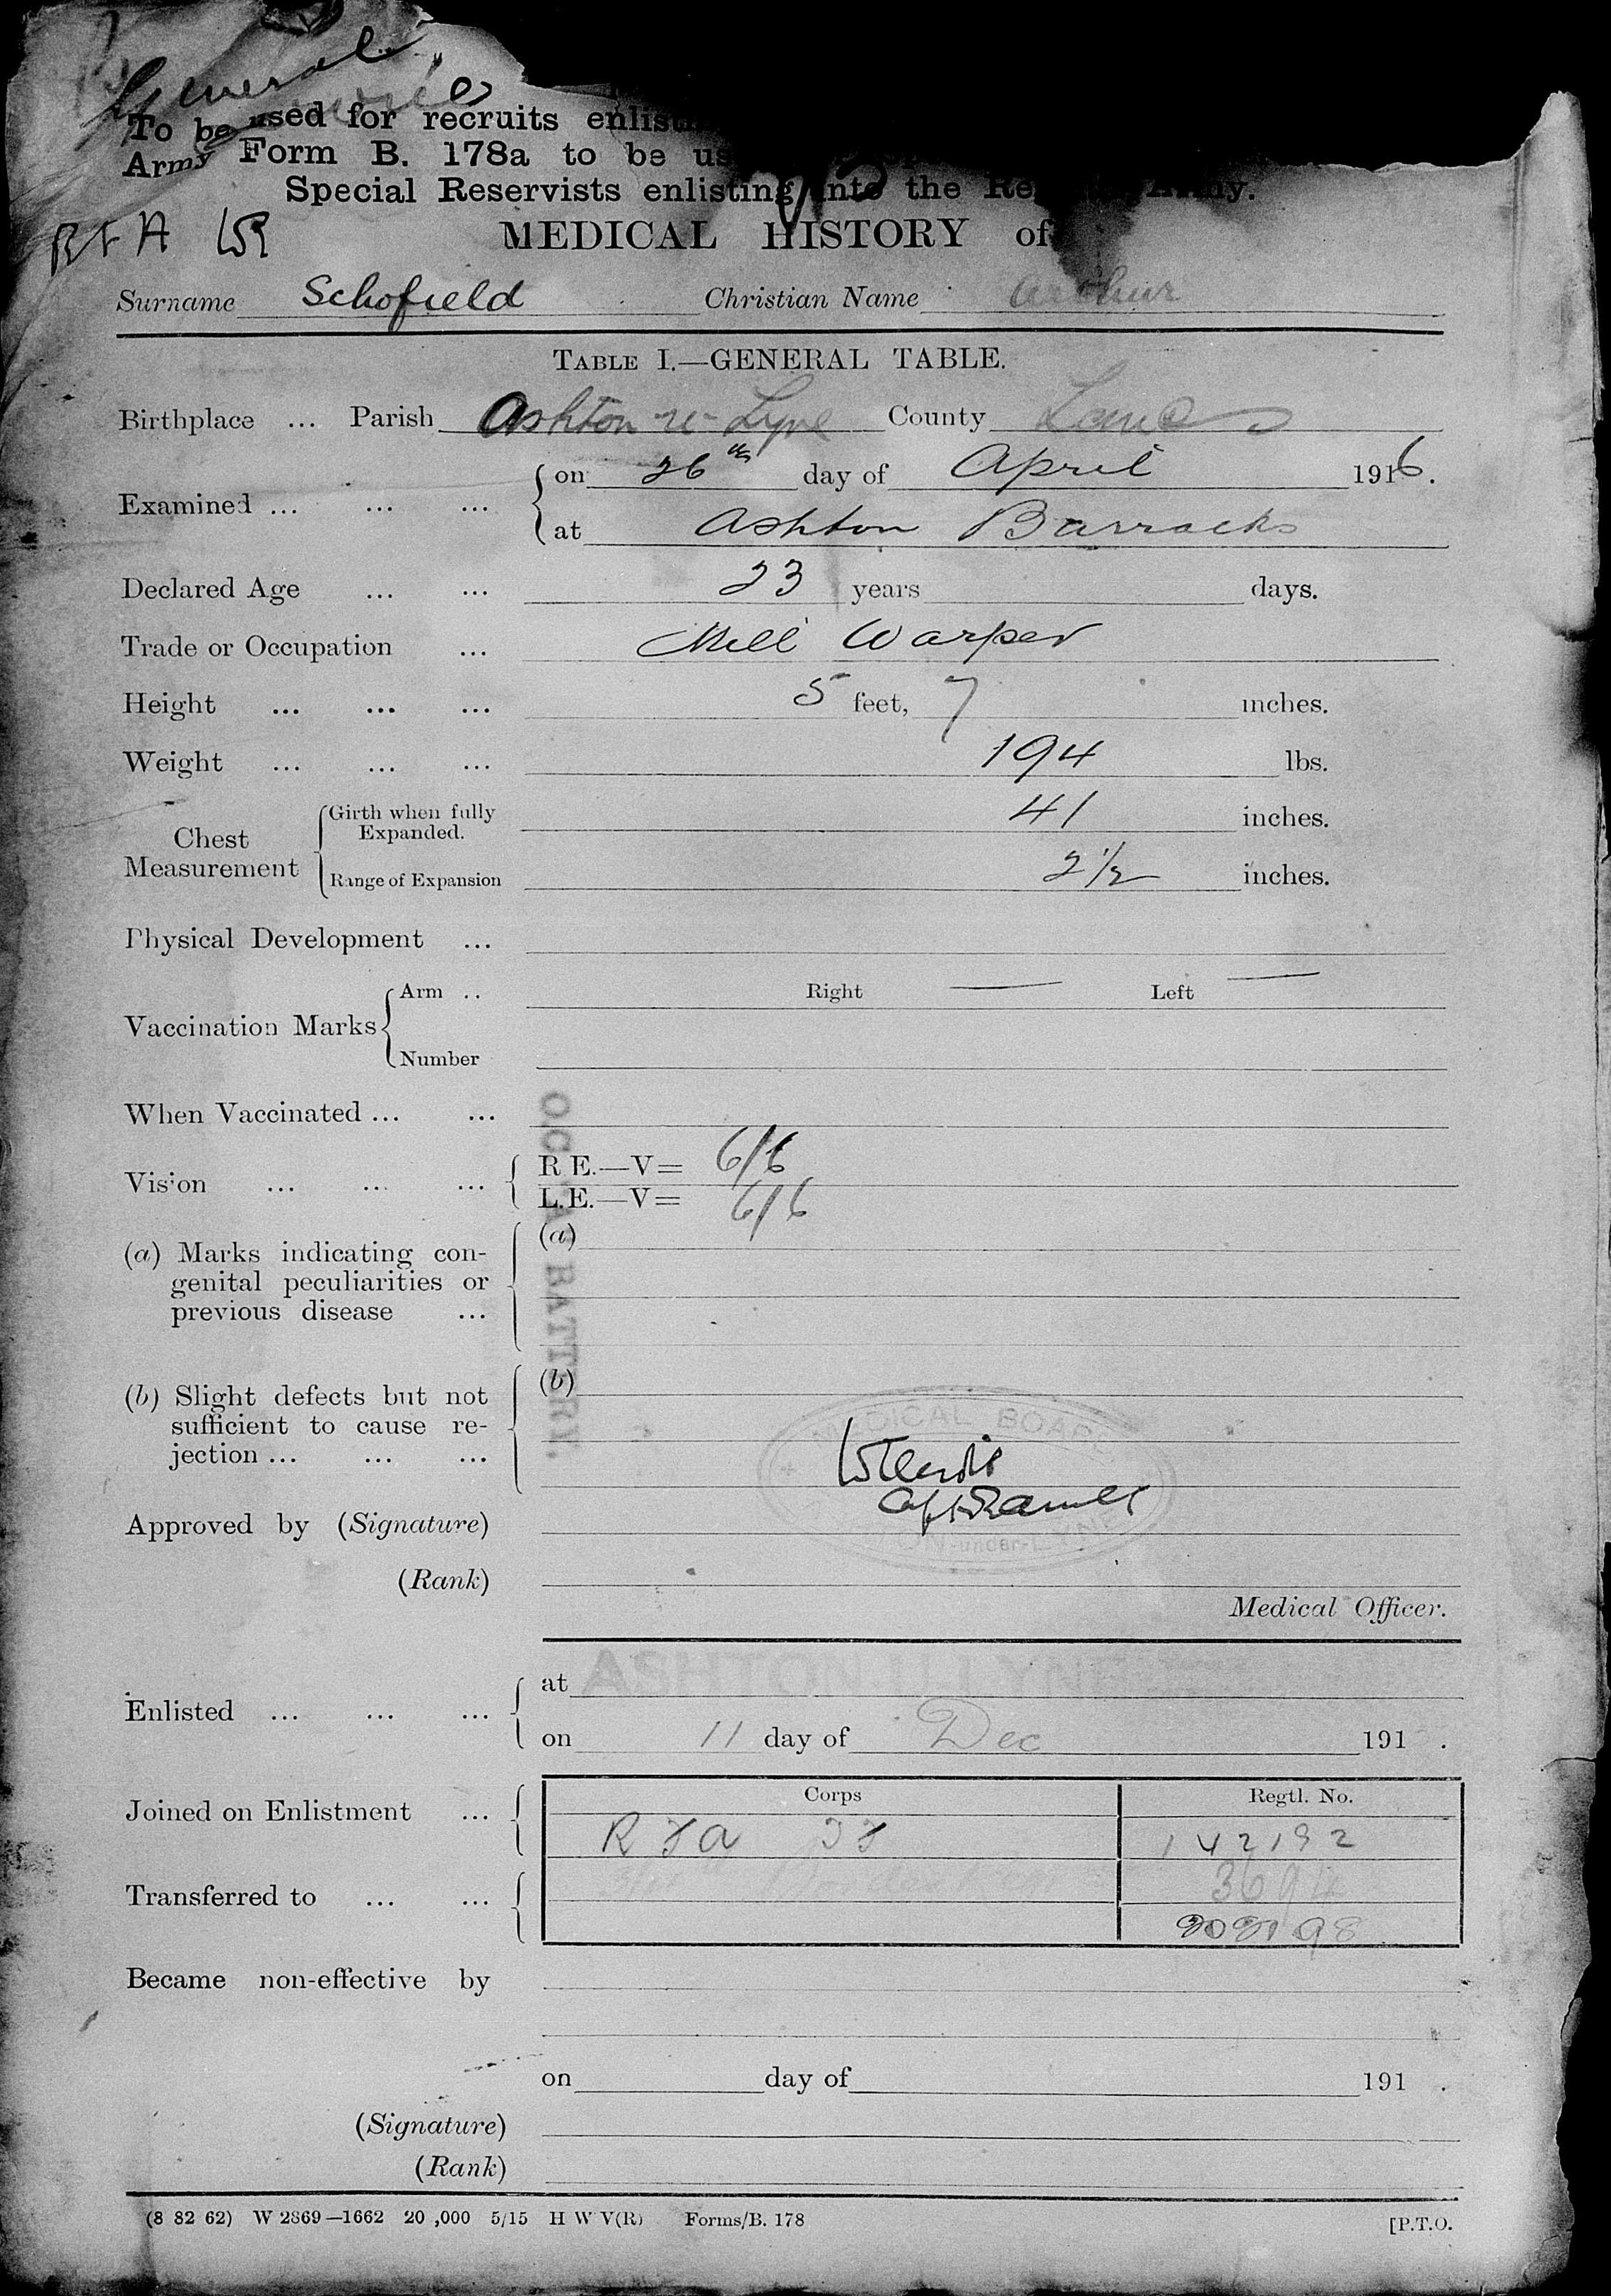 General
To be used for recruits enlist
Army Form B. 178a to be us
Special Reservists enlisting into the Re Army.
RFA
MEDICAL HISTORY of
Surname Schofield Christian Name Arthur
TABLE I.—GENERAL TABLE.
Birthplace ... Parish Ashton-u-Lyne County Lancs
Examined ... ... ... on 26th day of April 1916.
at Ashton Barracks
Declared Age ... ... 23 years days.
Trade or Occupation ... Mill Warper
Height ... ... ... 5 feet, 7 inches.
Weight ... ... ... 194 lbs.
Chest Measurement Girth when fully Expanded. 41 inches.
Range of Expansion 2 1/2 inches.
Physical Development ...
Vaccination Marks Arm .. Right — Left —
Number
When Vaccinated ... ...
Vision ... ... ... R.E.—V= 6/6
L.E.—V= 6/6
(a) Marks indicating con- (a)
genital peculiarities or
previous disease ...
BATTERY.
(b) Slight defects but not (b)
sufficient to cause re-
jection ... ... ...
MEDICAL BOARD
-under-LYNE
Approved by (Signature)
(Rank)
Medical Officer.
Enlisted ... ... ... at ASHTON-U-LYNE
on 11 day of Dec 191 .
Corps Regtl. No.
Joined on Enlistment ... R F A T F 142192
Transferred to ... ... 3694
Became non-effective by
on day of 191 .
(Signature)
(Rank)
(8 82 62) W 2869—1662 20,000 5/15 H W V(R) Forms/B. 178 [P.T.O.